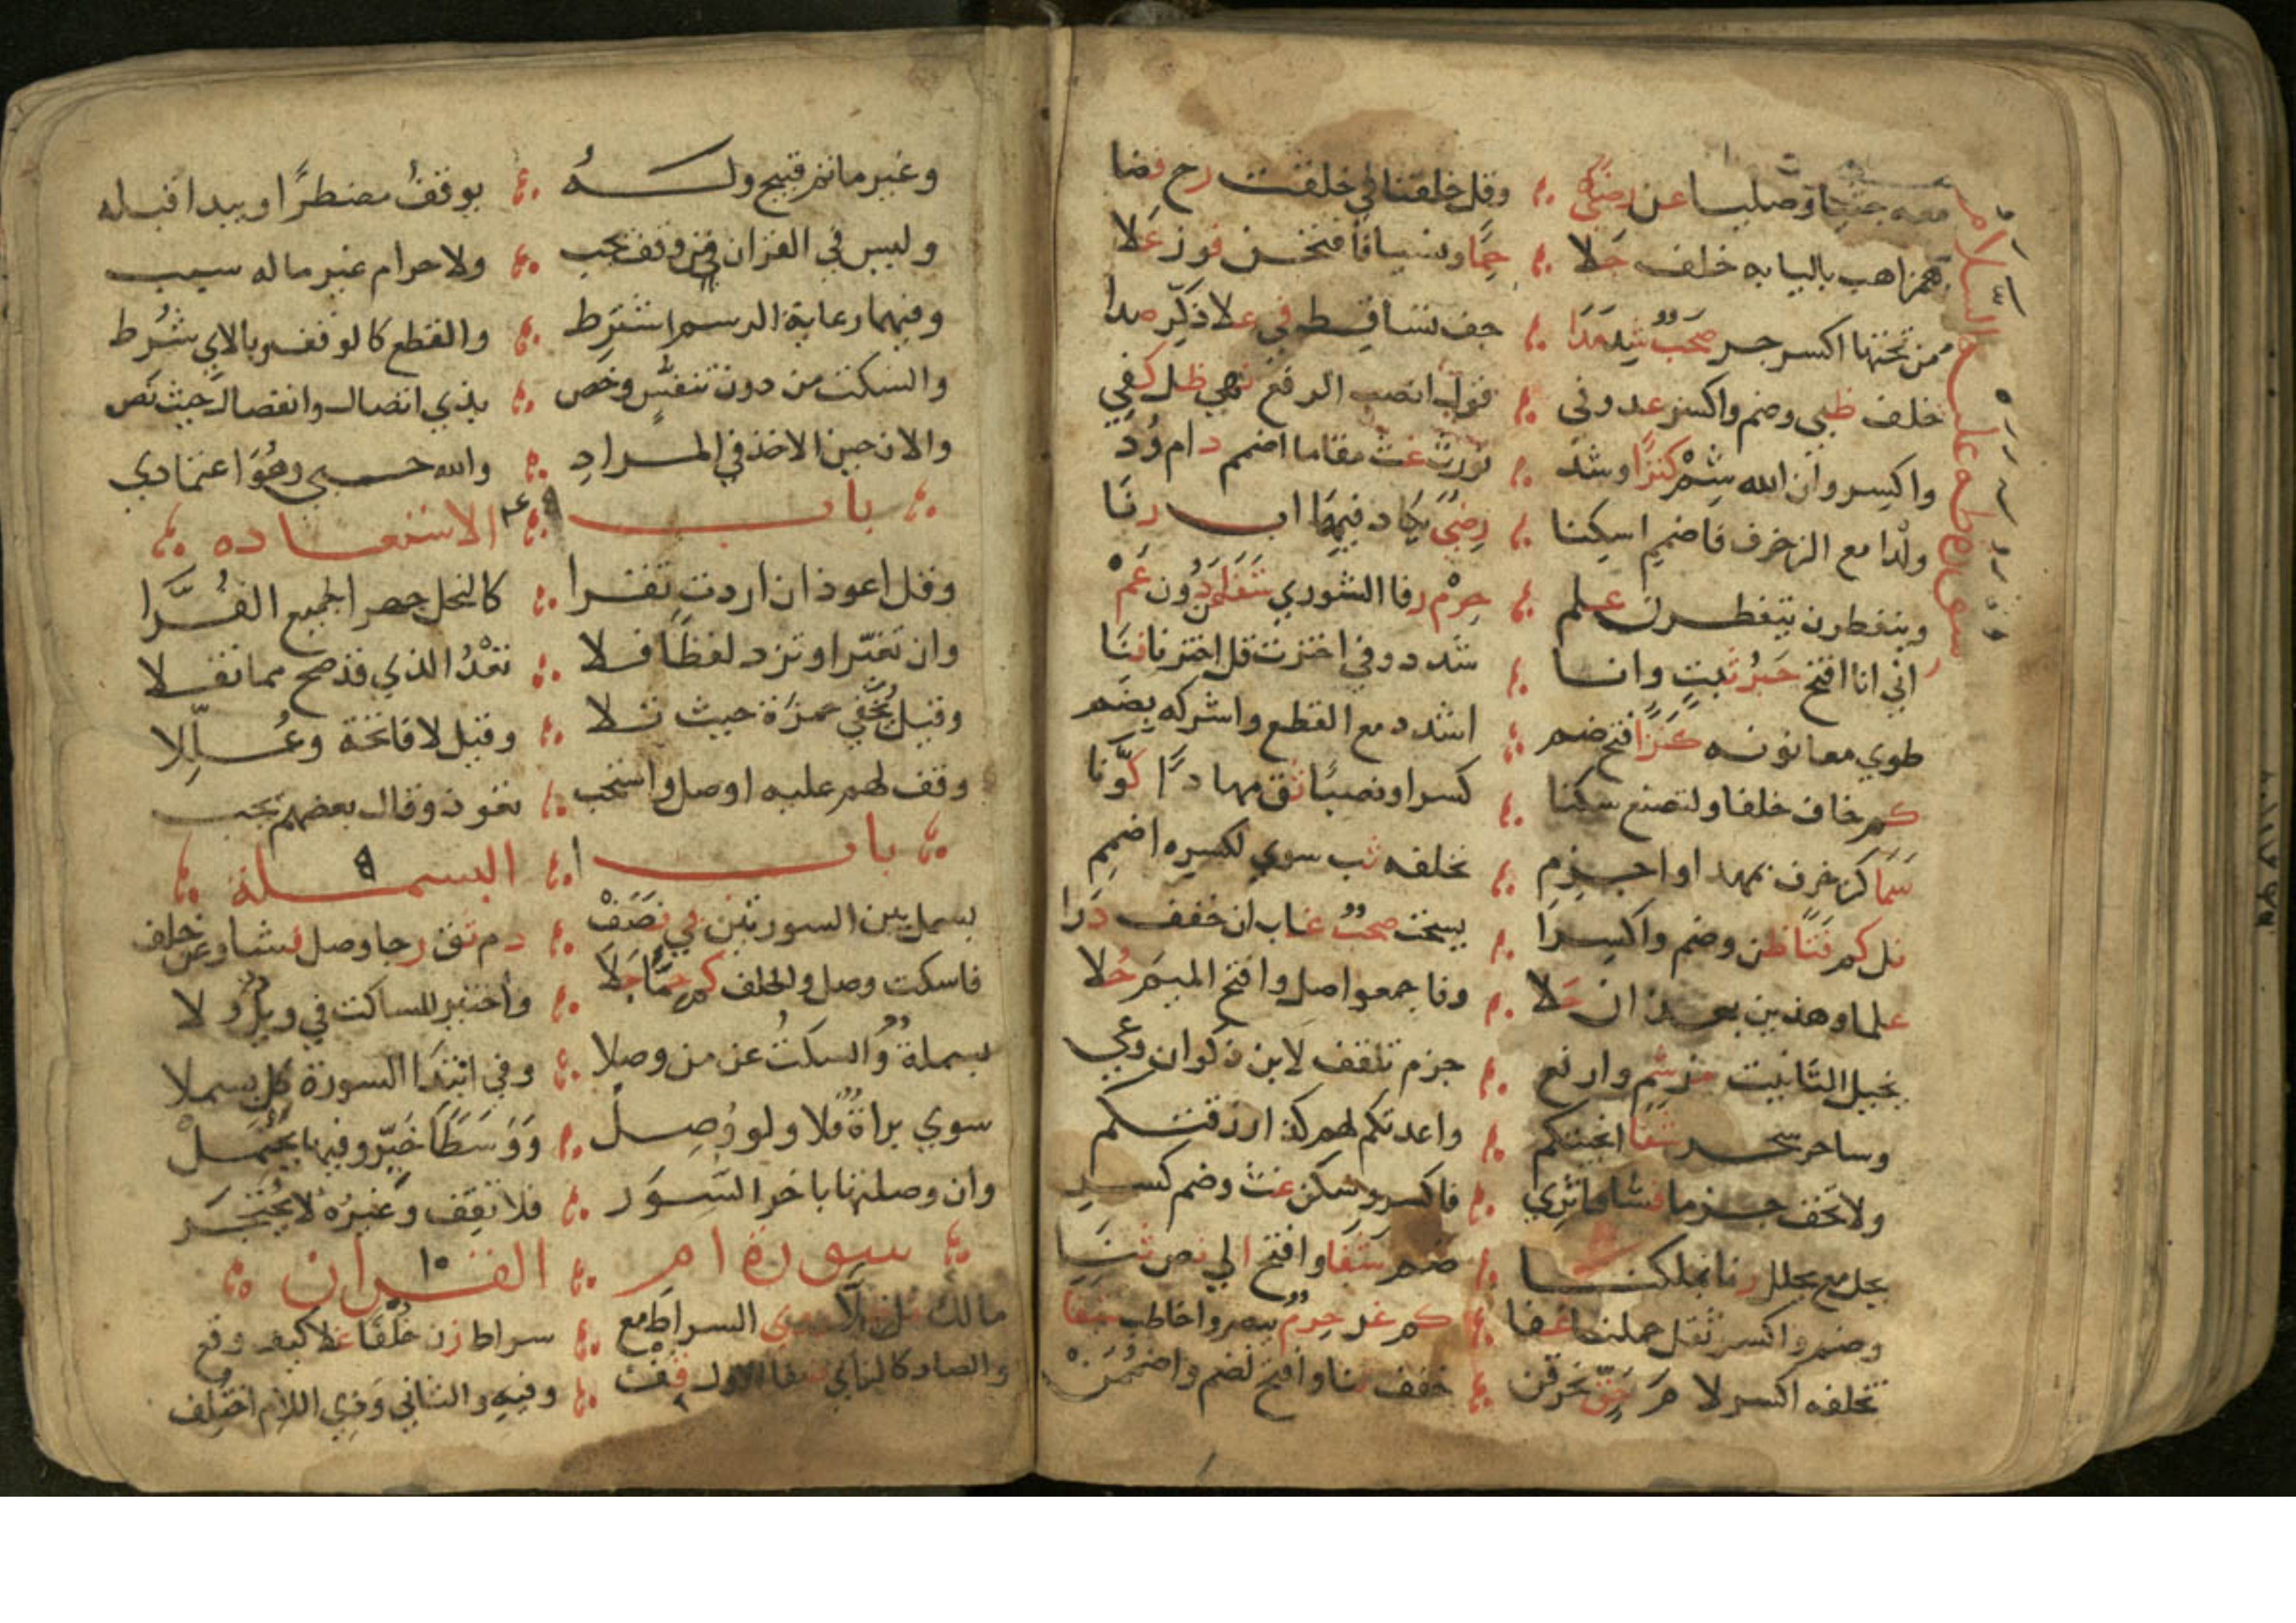 معه جثيا وصليا عن رضى وقل خلقنا في خلقت رح فضا
همز اهب باليا به خلف جلا حما ونسيا فافتحن فوز علا
من تحتها اكسر جر صحب شد مدا خف تساقط في علا ذكر صدا
خلف ظبي وضم واكسر عد وفي قول انصب الرفع نهى ظل كفي
واكسر وان الله شم كنزا وشد نورث غث مقاما اضمم دام ود
ولدا مع الزخرف فاضمم اسكنا رضى يكاد فيهما اب رنا
وينفطرن يتفطرن علم حرم رفا الشوري شفا عن دون عم
سورة طه عليه السلام
اني انا افتح حبر ثبت وانا شدد وفي اخترت قل اخترنا فنا
طوي معا نونه كنزا فتح ضم اشدد مع القطع واشركه يضم
كم خاف خلفا ولتصنع سكنا كسرا ونصبا ثق مهادا كونا
سما كزخرف بمهدا واجزم نخلفه ثب سوي لكسره اضمم
نل كم فتا ظن وضم واكسرا يسحت صحب غاب ان خفف درا
علما وهذين بهذان حلا وفاجمعوا صل وافتح الميم حلا
يخيل التانيث من شم وارفع جزم تلقف لابن ذكوان وعي
وساحر سحر شفا انجيتكم واعدتكم لهم كذا رزقتكم
ولا تخف جزما فشا فاثري فاكسر وسكن غث وضم كسر
يحل مع يحلل رنا بملكنا ضم شفا وافتح الي نص ثنا
وضم واكسر ثقل حملنا عفا كم غر حرم يبصروا خاطب شفا
تخلفه اكسر لام حق نحرقن خفف ثنا وافتح لضم واضممن
وغير ماتم قبيح وله يوقف مضطرا ويبدا قبله
وليس في القران من وقف يجب ولا حرام غير ما له سبب
وفيهما رعاية الرسم اشترط والقطع كالوقف وبالاي شرط
والسكت من دون تنفس وخص بذي اتصال وانفصال حيث نص
والان حين الاخذ في المراد والله حسبي وهو اعتمادي
باب الاستعاذه
وقل اعوذ ان اردت تقرا كالنحل جهرا لجميع القرا
وان تغير او تزد لفظا فلا تعد الذي قد صح مما نقلا
وقيل يخفي حمزة حيث تلا وقيل لا فاتحة وعللا
وقف لهم عليه او صل واستحب تعوذ وقال بعضهم يجب
باب البسملة
بسمل بين السورتين بي نصف دم ثق رجا وصل فشا وعن خلف
فاسكت وصل والخلف كم حما جلا واختير للساكت في ويل ولا
بسملة والسكت عن من وصلا وفي ابتدا السورة كل بسملا
سوي براة فلا ولو وصل ووسطا خير وفيها يحتمل
وان وصلتها باخر السور فلا تقف وغيره لا يحتجر
سورة ام القران ١٠
مالك السراط مع سراط زن خلفا غلا كيف وقع
والصاد كالزاي ضفا الاول قف وفيه والثاني وذي اللام اختلف